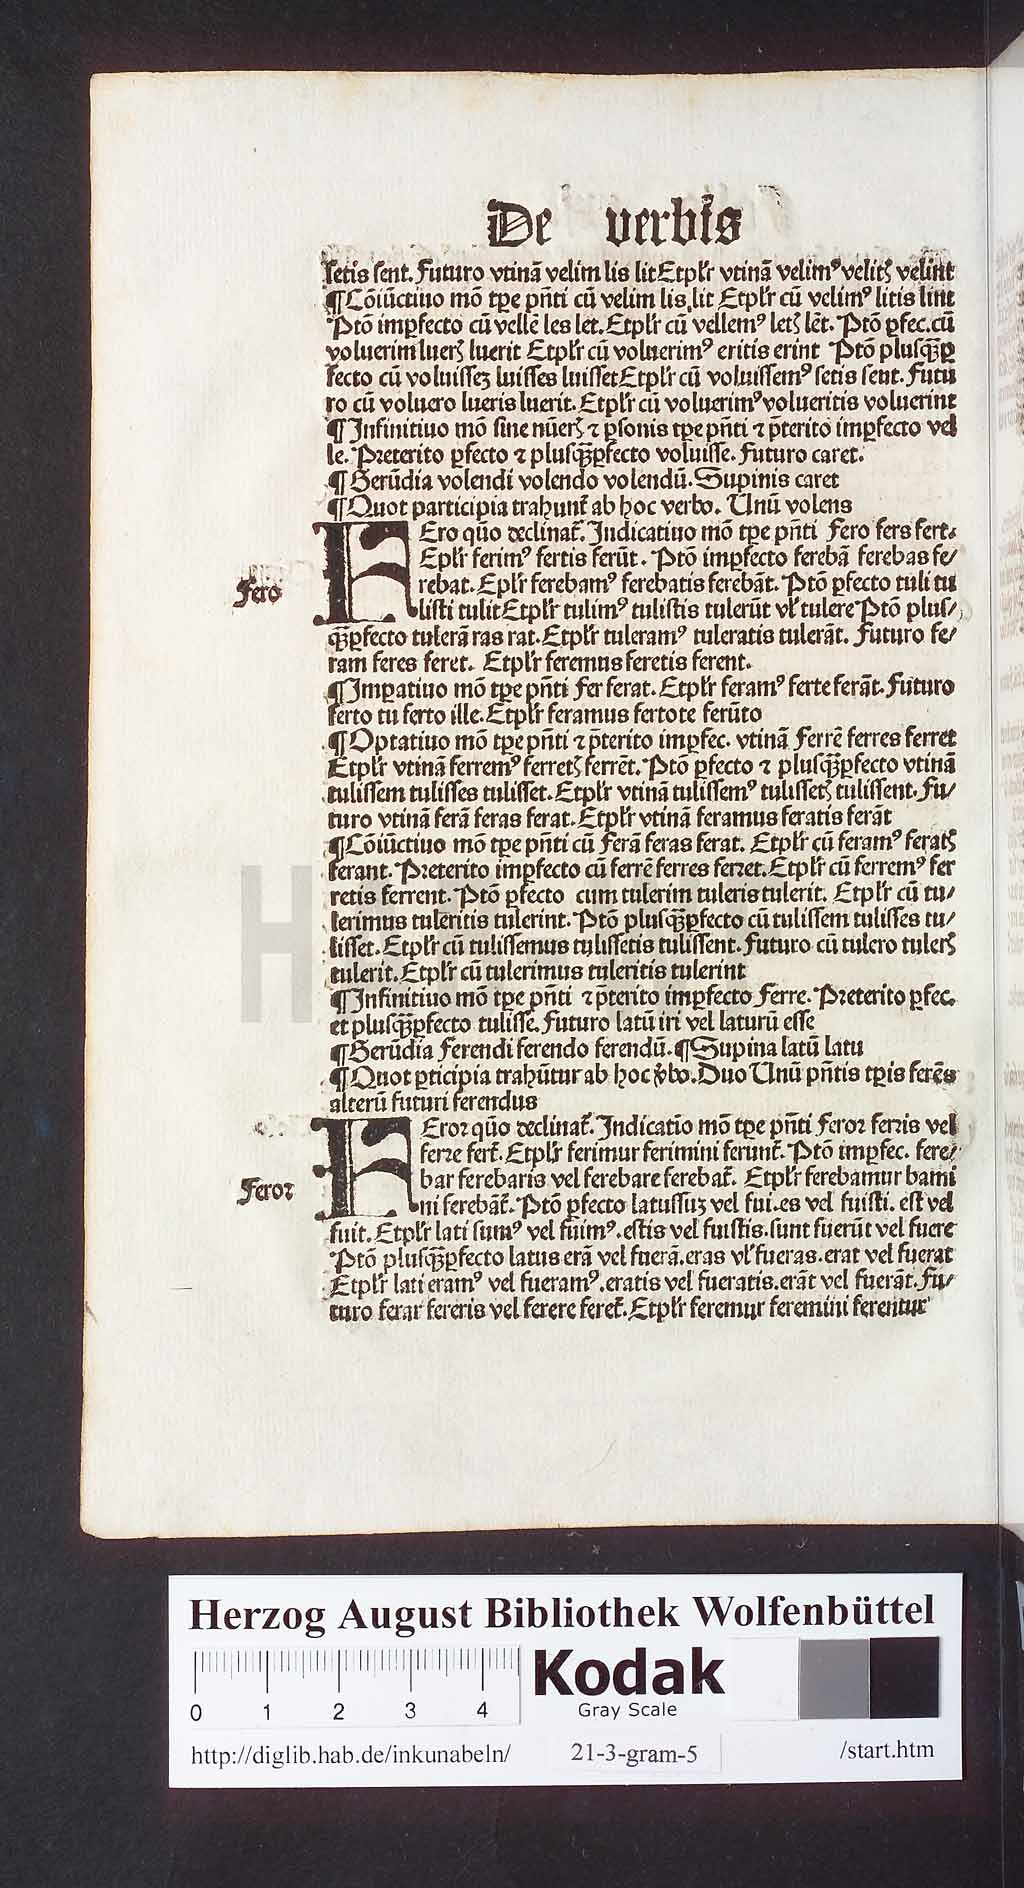 De verbis
setis sent. Futuro vtinã velim lis lit Etpl'r vtinã velimꝰ velitꝭ velint
¶ Cõiũctiuo mõ tp̃e pñti cũ velim lis lit Etpl'r cũ velimꝰ litis lint
Ptõ imꝑfecto cũ vellẽ les let. Etpl'r cũ vellemꝰ letꝭ lẽt. Ptõ ꝑfec. cũ
voluerim luerꝭ luerit Etpl'r cũ voluerimꝰ eritis erint Ptõ plusq̃ꝑ
fecto cũ voluisseꝫ luisses luisset Etpl'r cũ voluissemꝰ setis sent. Futu
ro cũ voluero lueris luerit. Etpl'r cũ voluerimꝰ volueritis voluerint
¶ Infinitiuo mõ sine nũerꝭ ⁊ ꝑsonis tp̃e pñti ⁊ p̃terito imꝑfecto vel
le. Preterito ꝑfecto ⁊ plusq̃ꝑfecto voluisse. Futuro caret.
¶ Gerũdia volendi volendo volendũ. Supinis caret
¶ Quot participia trahunt᷑ ab hoc verbo. Unũ volens
FEro quõ declinat᷑. Indicatiuo mõ tp̃e pñti Fero fers fert.
Etpl'r ferimꝰ fertis ferũt. Ptõ imꝑfecto ferebã ferebas fe/
Fero
rebat. Etpl'r ferebamꝰ ferebatis ferebãt. Ptõ ꝑfecto tuli tu
listi tulit Etpl'r tulimꝰ tulistis tulerũt vl' tulere Ptõ plus/
q̃ꝑfecto tulerã ras rat. Etpl'r tuleramꝰ tuleratis tulerãt. Futuro fe/
ram feres feret. Etpl'r feremus feretis ferent.
¶ Imꝑatiuo mõ tp̃e pñti Fer ferat. Etpl'r feramꝰ ferte ferãt. Futuro
ferto tu ferto ille. Etpl'r feramus fertote ferũto
¶ Optatiuo mõ tp̃e pñti ⁊ p̃terito imꝑfec. vtinã Ferrẽ ferres ferret
Etpl'r vtinã ferremꝰ ferretꝭ ferrẽt. Ptõ ꝑfecto ⁊ plusq̃ꝑfecto vtinã
tulissem tulisses tulisset. Etpl'r vtinã tulissemꝰ tulissetꝭ tulissent. Fu/
turo vtinã ferã feras ferat. Etpl'r vtinã feramus feratis ferãt
¶ Cõiũctiuo mõ tp̃e pñti cũ Ferã feras ferat. Etpl'r cũ feramꝰ feratꝭ
ferant. Preterito imꝑfecto cũ ferrẽ ferres ferret. Etpl'r cũ ferremꝰ fer
retis ferrent. Ptõ ꝑfecto cum tulerim tuleris tulerit. Etpl'r cũ tu/
lerimus tuleritis tulerint. Ptõ plusq̃ꝑfecto cũ tulissem tulisses tu/
lisset. Etpl'r cũ tulissemus tulissetis tulissent. Futuro cũ tulero tulerꝭ
tulerit. Etpl'r cũ tulerimus tuleritis tulerint
¶ Infinitiuo mõ tp̃e pñti ⁊ p̃terito imꝑfecto Ferre. Preterito ꝑfec.
et plusq̃ꝑfecto tulisse. Futuro latũ iri vel laturũ esse
¶ Gerũdia Ferendi ferendo ferendũ. ¶ Supina latũ latu
¶ Quot ꝑticipia trahũtur ab hoc v̾bo. Duo Unũ pñtis tp̃is ferẽs
alterũ futuri ferendus
FEror quõ declinat᷑. Indicatiõ mõ tp̃e pñti Feror ferris vel
ferre fert᷑. Etpl'r ferimur ferimini ferunt᷑. Ptõ imꝑfec. fere/
bar ferebaris vel ferebare ferebat᷑. Etpl'r ferebamur bami
Feror
ni ferebãt᷑. Ptõ ꝑfecto latussuꝫ vel fui. es vel fuisti. est vel
fuit. Etpl'r lati sumꝰ vel fuimꝰ. estis vel fuistis. sunt fuerũt vel fuere
Ptõ plusq̃ꝑfecto latus erã vel fuerã. eras vl' fueras. erat vel fuerat
Etpl'r lati eramꝰ vel fueramꝰ. eratis vel fueratis. erãt vel fuerãt. Fu/
turo ferar fereris vel ferere feret᷑. Etpl'r feremur feremini ferentur
Herzog August Bibliothek Wolfenbüttel
Kodak
Gray Scale
0 1 2 3 4
http://diglib.hab.de/inkunabeln/ 21-3-gram-5 /start.htm